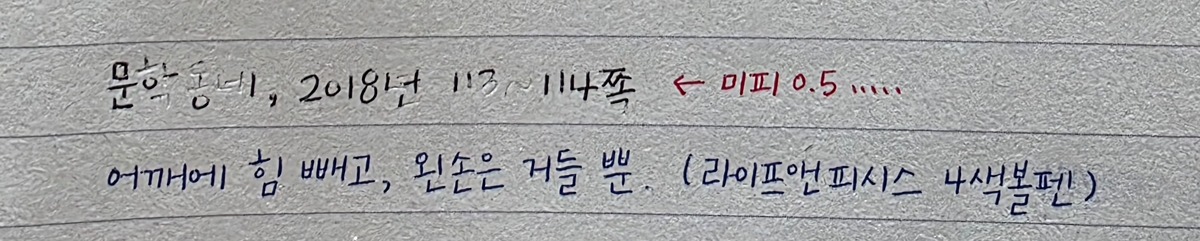 문학동네, 2018년 113~114쪽 ← 미피 0.5 .....
어깨에 힘 빼고, 왼손은 거들 뿐. (라이프앤피시스 4색볼펜)